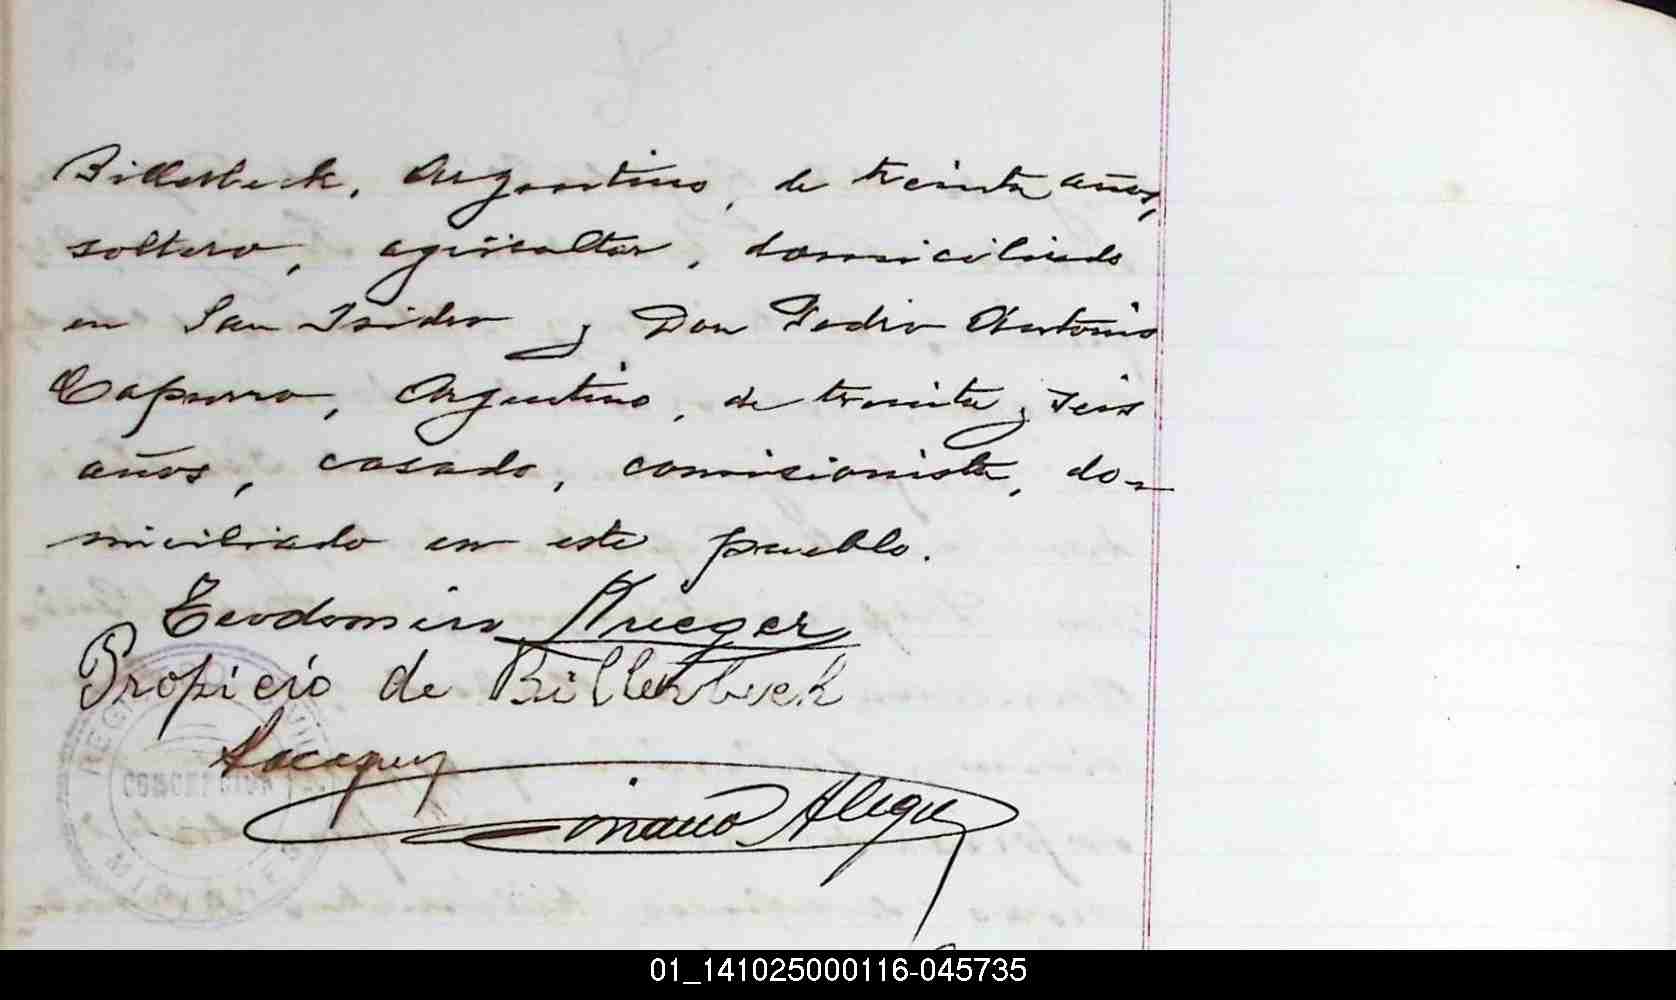 Billerbeck, Argentino, de treinta años,
soltero, agricultor, domiciliado
en San Isidro y Don Pedro Antonio
Capurro, Argentino, de treinta y seis
años, casado, comisionista, do-
miciliado en este pueblo.
Teodomiro Krueger
Propicio de Billerbeck
Alegre
REGISTRO CIVIL
CONCEPCION
MISIONES
01_141025000116-045735